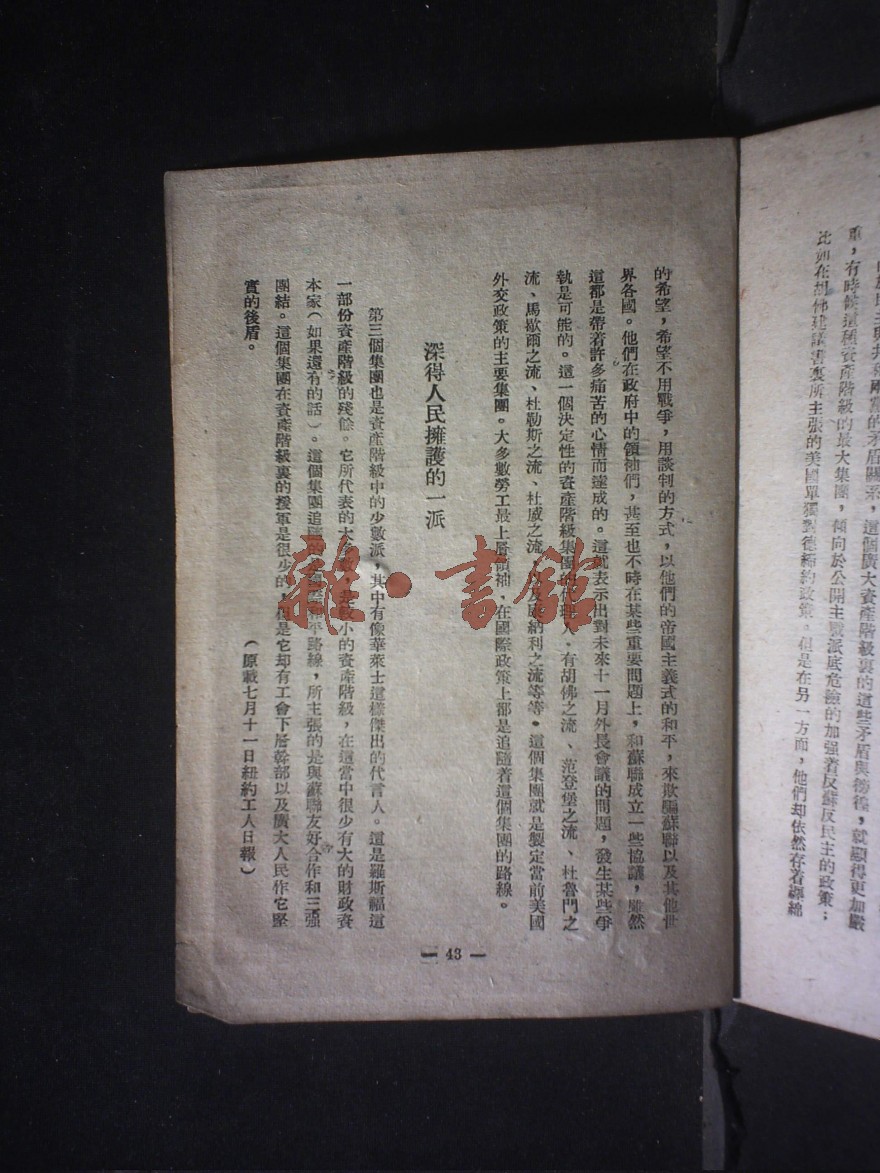 重，有時候這種資產階級的最大集團，傾向於公開主戰派底危險的加强着反蘇反民主的政策；
比如在胡佛建議書裏所主張的美國單獨對德締約政策。但是在另一方面，他們却依然存着
的希望，希望不用戰爭，用談判的方式，以他們的帝國主義式的和平，來欺騙蘇聯以及其他世
界各國。他們在政府中的領袖們，甚至也不時在某些重要問題上，和蘇聯成立一些協議，雖然
這都是帶着許多痛苦的心情而達成的。這就表示出對未來十一月外長會議的問題，發生某些爭
執是可能的。這一個決定性的資產階級集團的代理人，有胡佛之流、范登堡之流、杜魯門之
流、馬歇爾之流、杜勒斯之流、杜威之流、以及麥納利之流等等。這個集團就是製定當前美國
外交政策的主要集團。大多數勞工最上層領袖，在國際政策上都是追隨着這個集團的路線。
深得人民擁護的一派
第三個集團也是資產階級中的少數派，其中有像華萊士這樣傑出的代言人。這是羅斯福這
一部份資產階級的殘餘。它所代表的大多數，是較小的資產階級，在這當中很少有大的財政資
本家（如果還有的話）。這個集團追隨的是 和平路線，所主張的是與蘇聯友好合作和三强
團結。這個集團在資產階級裏的援軍是很少的，但是它却有工會下層幹部以及廣大人民作它堅
實的後盾。
（原載七月十一日紐約工人日報）
— 43 —
雜·書館